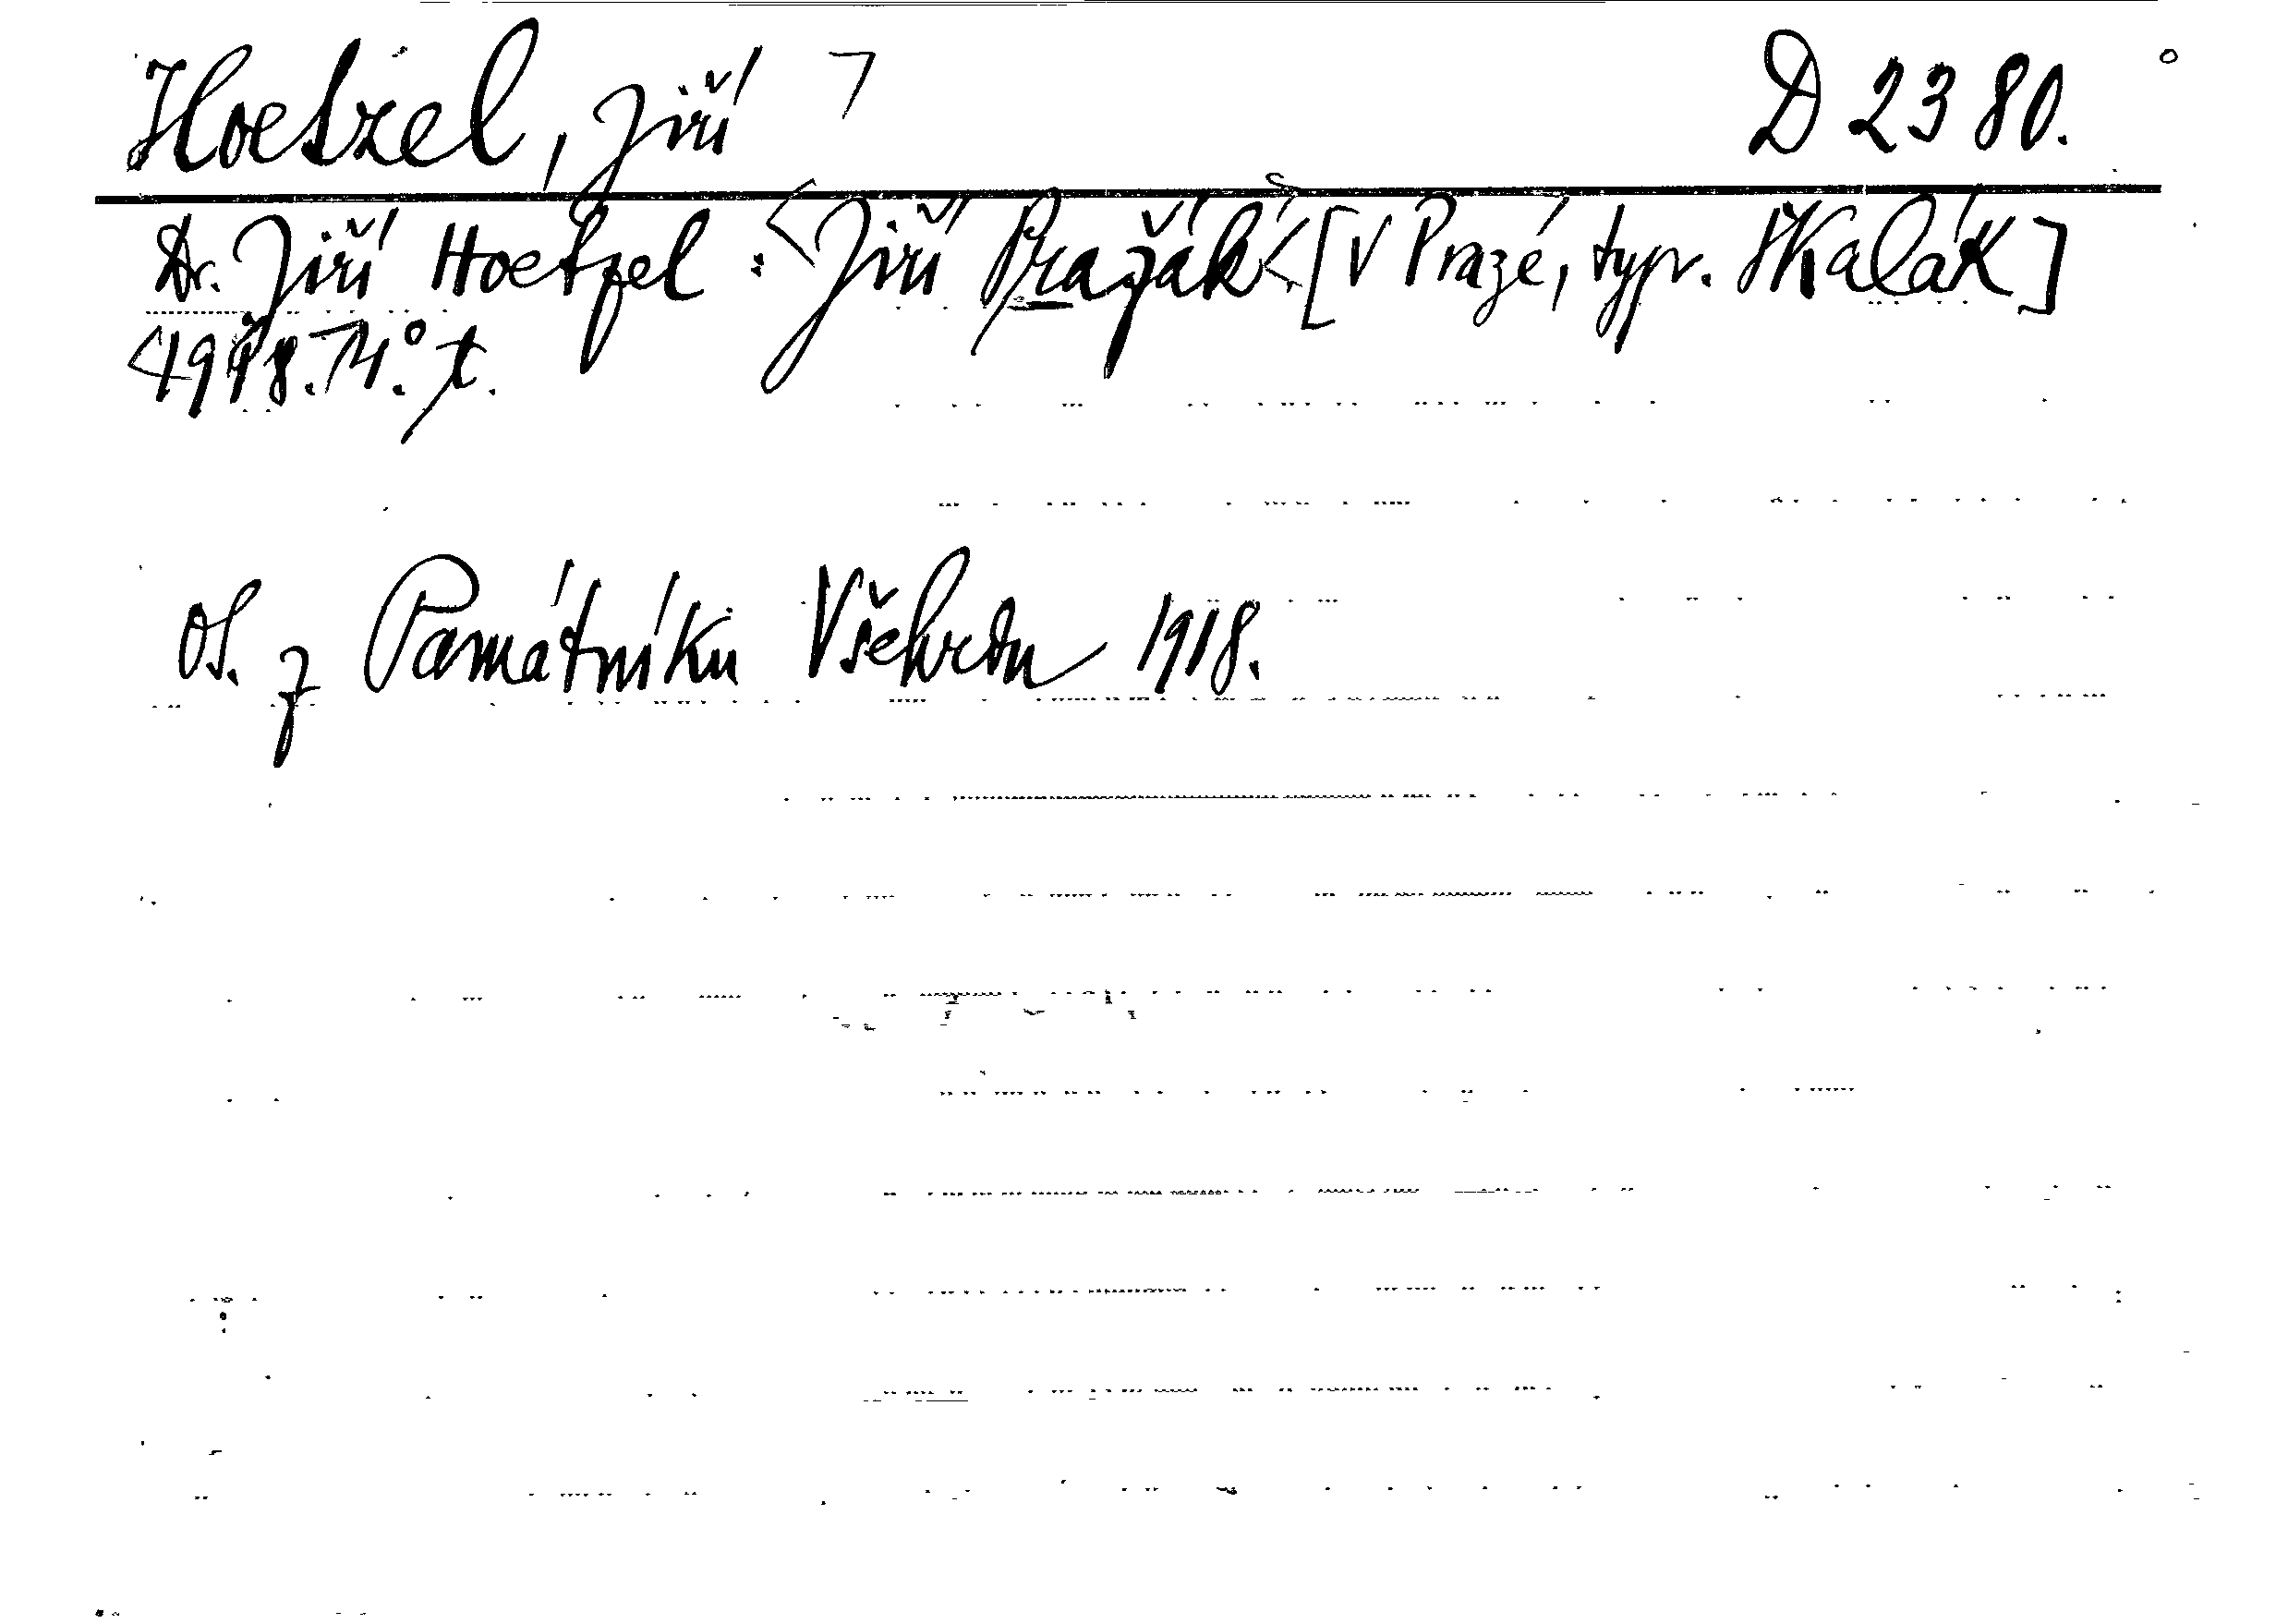 Hoetzel, Jiří D 2380.
Dr. Jiří Hoetzel: Jiří Pražák [V Praze, typ. Skalák]
1918. 4°.
Ot. z Památníku Všehrdu 1918.